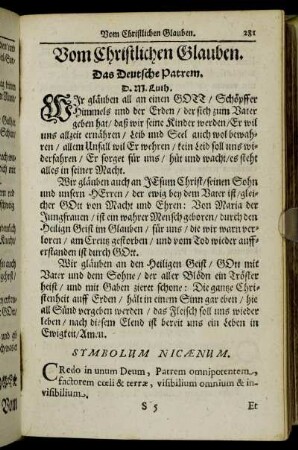 Vom Christlichen Glauben. 281
Vom Christlichen Glauben.
Das Deutsche Patrem.
D. M. Luth.
WIr gläuben all an einen GOTT / Schöpffer
Himmels und der Erden / der sich zum Vater
geben hat / daß wir seine Kinder werden / Er wil
uns allzeit ernähren / Leib und Seel auch wol bewah-
ren / allem Unfall wil Er wehren / kein Leid soll uns wi-
derfahren / Er sorget für uns / hüt und wacht / es steht
alles in seiner Macht.
Wir gläuben auch an JEsum Christ / seinen Sohn
und unsern HErren / der ewig bey dem Vater ist / glei-
cher GOtt von Macht und Ehren: Von Maria der
Jungfrauen / ist ein wahrer Mensch geboren / durch den
Heilign Geist im Glauben / für uns / die wir warn ver-
loren / am Creutz gestorben / und vom Tod wieder auff-
erstanden ist durch GOtt.
Wir gläuben an den Heiligen Geist / GOtt mit
Vater und dem Sohne / der aller Blödn ein Tröster
heist / und mit Gaben zieret schone: Die gantze Chri-
stenheit auff Erden / hält in einem Sinn gar eben / hie
all Sünd vergeben werden / das Fleisch soll uns wieder
leben / nach disem Elend ist bereit uns ein Leben in
Ewigkeit / Amen.
SYMBOLUM NICÆNUM.
CRedo in unum Deum, Patrem omnipotentem,
factorem cœli & terræ, visibilium omnium & in-
visibilium,
S 5 Et